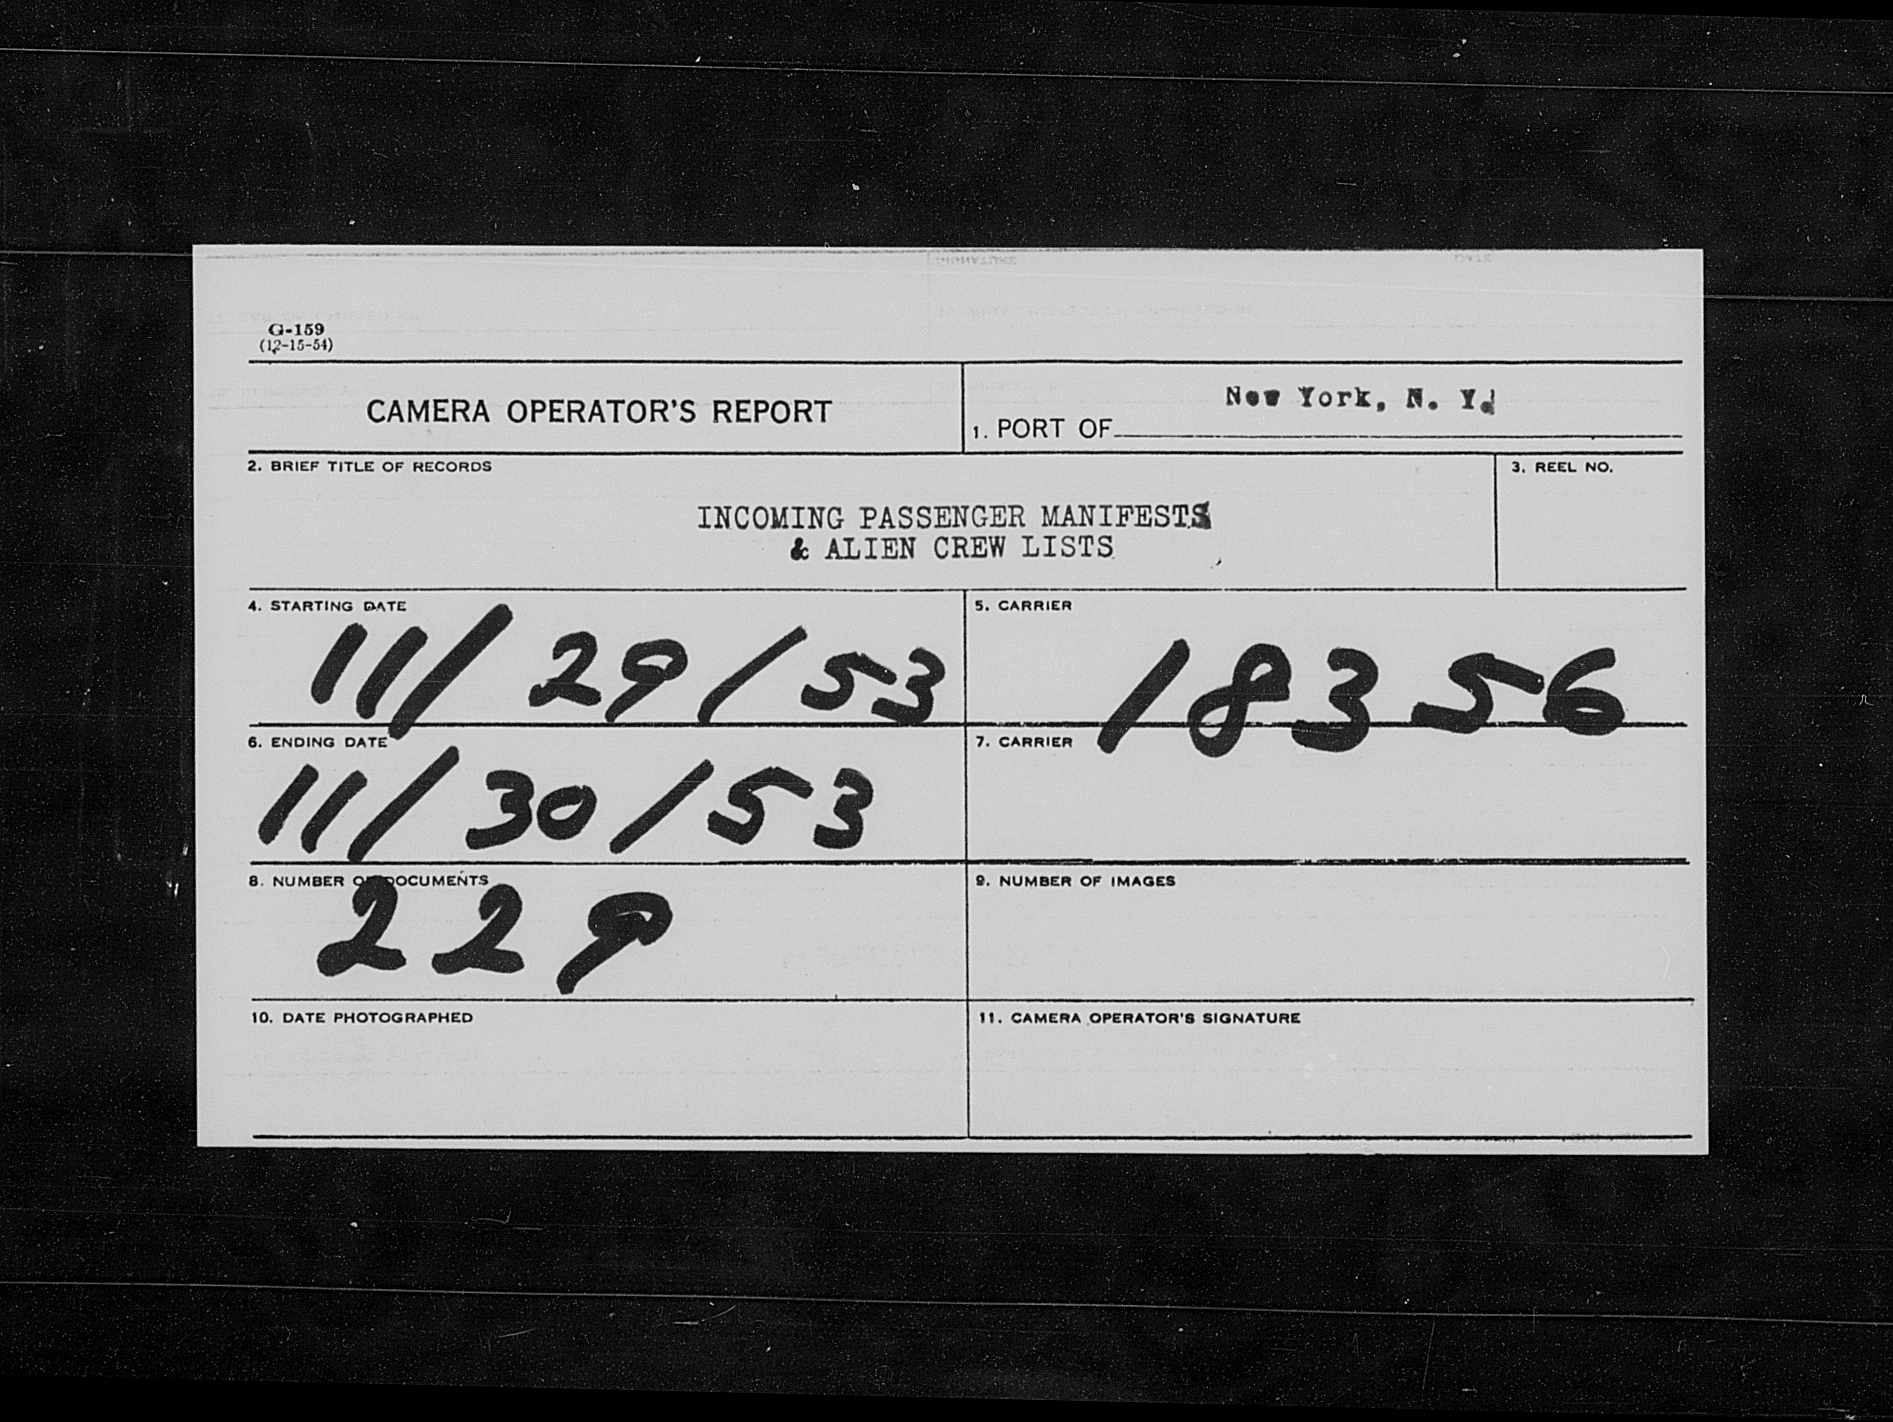 G-159
(12-15-54)
CAMERA OPERATOR'S REPORT
1. PORT OF New York, N. Y.
2. BRIEF TITLE OF RECORDS
3. REEL NO.
INCOMING PASSENGER MANIFESTS
& ALIEN CREW LISTS
4. STARTING DATE
11/29/53
5. CARRIER
18356
6. ENDING DATE
11/30/53
7. CARRIER
8. NUMBER OF DOCUMENTS
229
9. NUMBER OF IMAGES
10. DATE PHOTOGRAPHED
11. CAMERA OPERATOR'S SIGNATURE